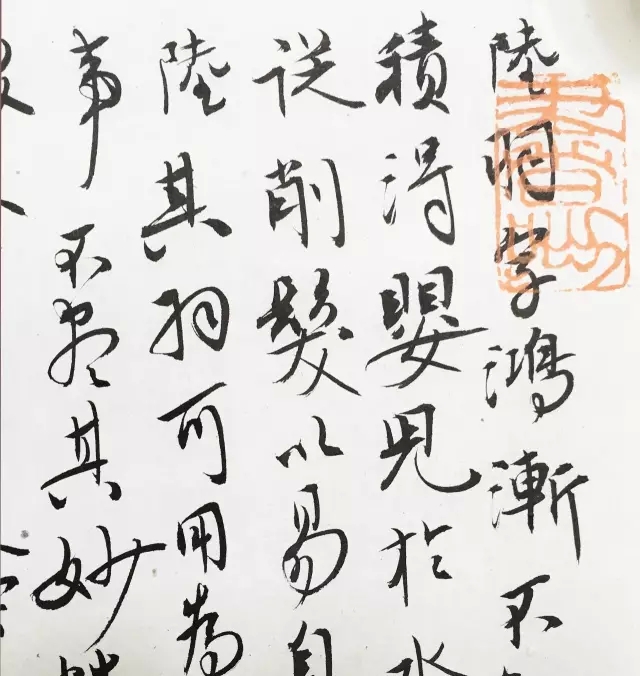 陸羽字鴻漸不
積得嬰兒於水
從削髮以易自
陸其羽可用為
事不盡其妙